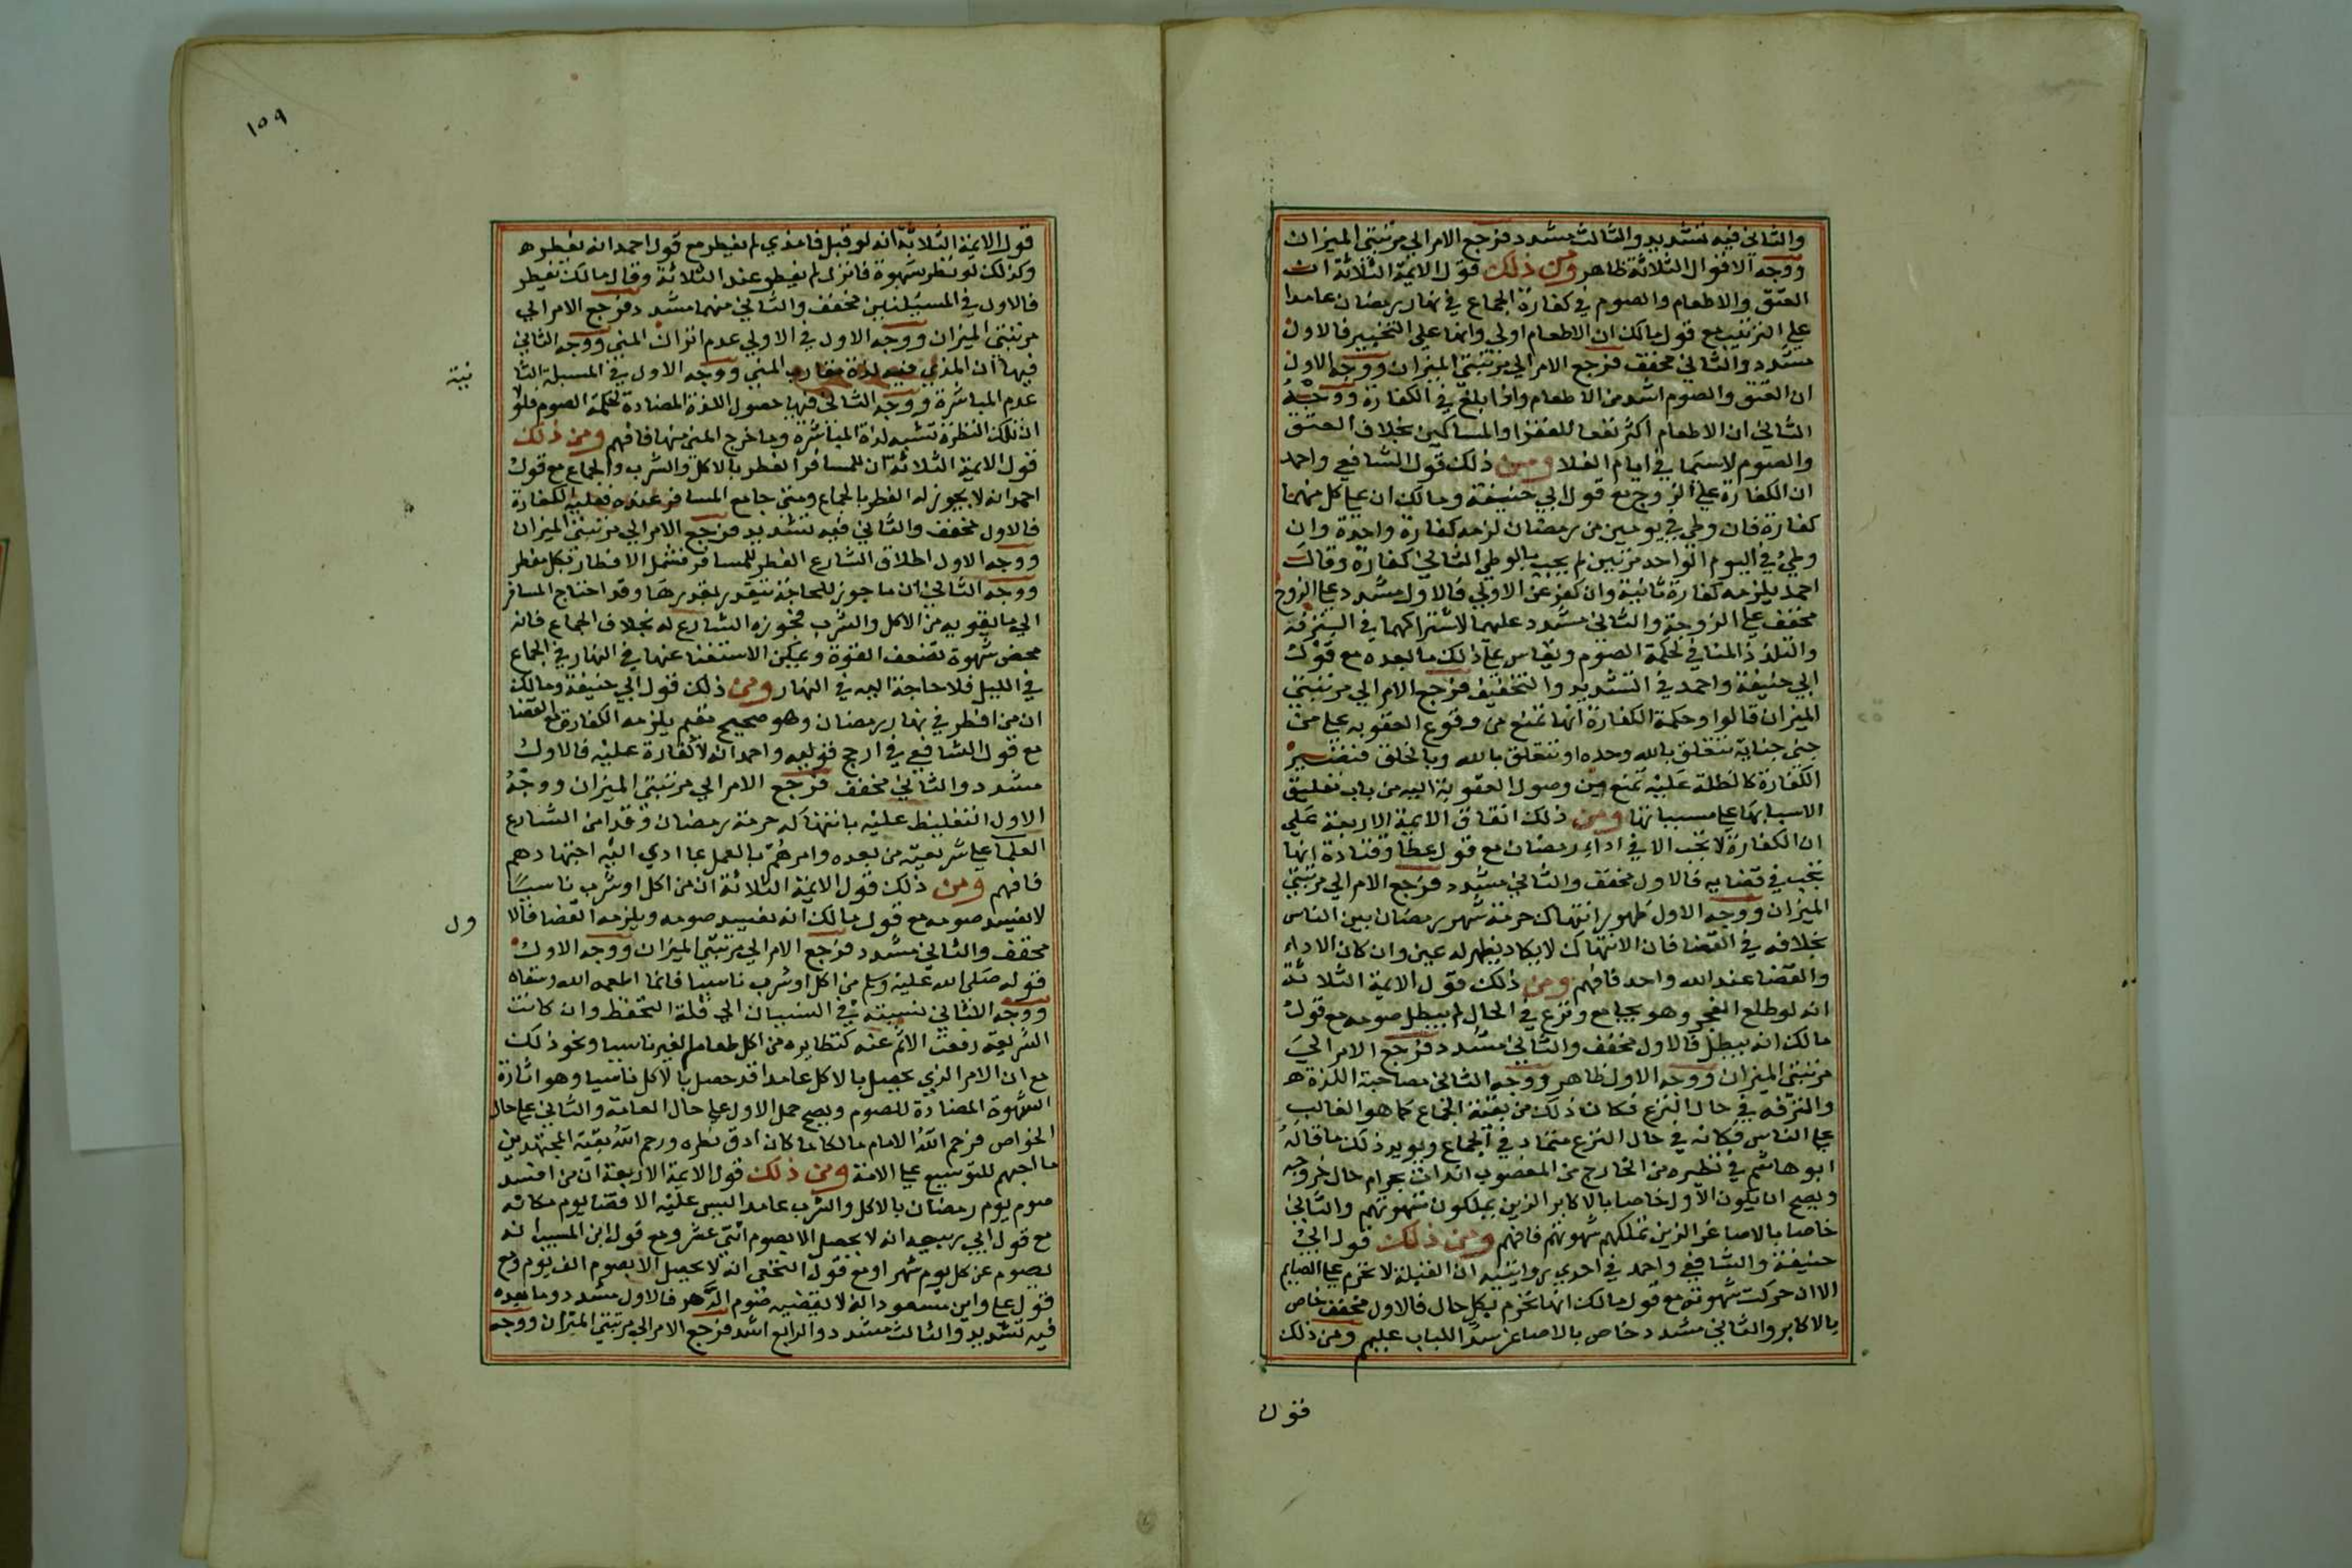 والثاني فيه تشديد والثالث مشدد فرجع الامر الي مرتبتي الميزان
ووجه الاقوال الثلاثة ظاهر ومن ذلك قول الايمة الثلاثة ان
العتق والاطعام والصوم في كفارة الجماع في نهار رمضان عامدا
علي الترتيب مع قول مالك ان الاطعام اولي وانها علي التخيير فالاول
مشدد والثاني مخفف فرجع الامر الي مرتبتي الميزان ووجه الاول
ان العتق والصوم اشد من الاطعام واذا بلغ في الكفارة ووجه
الثاني ان الاطعام اكثر نفعا للفقرا والمساكين بخلاف العتق
والصوم لاسيما في ايام الغلا ومن ذلك قول الشافعي واحمد
ان الكفارة علي الزوج مع قول ابي حنيفة ومالك ان علي كل منهما
كفارة فان وطي في يومين من رمضان لزمه كفارة واحدة وان
وطي في اليوم الواحد مرتين لم يجب بالوطي الثاني كفارة وقال
احمد يلزمه كفارة ثانية وان كفر عن الاولي فالاول مشدد علي الزوج
مخفف علي الزوجة والثاني مشدد عليهما لاشتراكهما في الترفه
والتلذذ المنافي لحكمة الصوم ويقاس علي ذلك ما بعده مع قول
ابي حنيفة واحمد في التشديد والتخفيف فرجع الامر الي مرتبتي
الميزان قالوا وحكمة الكفارة انها تمنع من وقوع العقوبه علي من
جني جناية تتعلق بالله وحده او تتعلق بالله وبالخلق فتصير
الكفارة كالظلة عليه تمنع من وصول العقوبة اليه من باب تعليق
الاسباب علي مسبباتها ومن ذلك اتفاق الايمة الاربعة علي
ان الكفارة لا تجب الا في اداء رمضان مع قول عطا وقتادة انها
تجب في قضايه فالاول مخفف والثاني مشدد فرجع الامر الي مرتبتي
الميزان ووجه الاول ظهور انتهاك حرمة شهر رمضان بين الناس
بخلافه في القضا فان الانتهاك لا يكاد يظهر له عين وان كان الاداء
والقضا عند الله واحد فافهم ومن ذلك قول الايمة الثلاثة
انه لو طلع الفجر وهو يجامع ونزع في الحال لم يبطل صومه مع قول
مالك انه يبطل فالاول مخفف والثاني مشدد فرجع الامر الي
مرتبتي الميزان ووجه الاول ظاهر ووجه الثاني مصاحبة اللذة ه
والترفه في حال النزع فكان ذلك من بقية الجماع كما هو الغالب
علي الناس فكانه في حال النزع متماد في الجماع ويويد ذلك ما قاله
ابو هاشم في نظيره من الخارج من المغصوب انه ات بحرام حال خروجه
ويصح ان يكون الاول خاصا بالاكابر الذين يملكون شهوتهم والثاني
خاصا بالاصاغر الذين تملكهم شهوتهم فافهم ومن ذلك قول ابي
حنيفة والشافعي واحمد في احدي روايتيه ان القبلة لا تحرم علي الصايم
الا ان حركت شهوته مع قول مالك انها تحرم بكل حال فالاول مخفف خاص
بالاكابر والثاني مشدد خاص بالاصاغر سدا للباب عليهم ومن ذلك
قول
١٥٩
قول الايمة الثلاثة انه لو قبل فامذي لم يفطر مع قول احمد انه يفطر ه
وكذلك لو نظر بشهوة فانزل لم يفطر عند الثلاثة وقال مالك يفطر
فالاول في المسيلتين مخفف والثاني منهما مشدد فرجع الامر الي
مرتبتي الميزان ووجه الاول في الاولي عدم انزال المني ووجه الثاني
فيها ان المذي فيه لذة تقارب المني ووجه الاول في المسيلة الثا
نية
عدم المباشرة ووجه الثاني فيها حصول اللذة المضادة لحكمة الصوم فلولا
ان تلك النظرة تشبه لذة المباشرة وما خرج المني منها فافهم ومن ذلك
قول الايمة الثلاثة ان للمسافر الفطر بالاكل والشرب والجماع مع قول
احمد انه لا يجوز له الفطر بالجماع ومتي جامع المسافر عنده فعليه الكفارة
فالاول مخفف والثاني فيه تشديد فرجع الامر الي مرتبتي الميزان
ووجه الاول اطلاق الشارع الفطر للمسافر فشمل الافطار بكل مفطر
ووجه الثاني ان ما جوز للحاجة يتقدر بقدرها وقد احتاج المسافر
الي ما يقويه من الاكل والشرب فجوزه الشارع له بخلاف الجماع فانه
محض شهوة تضعف القوة ويمكن الاستغنا عنها في النهار في الجماع
في الليل فلا حاجة اليه في النهار ومن ذلك قول ابي حنيفة ومالك
ان من افطر في نهار رمضان وهو صحيح مقيم يلزمه الكفارة مع القضا
مع قول الشافعي في ارجح قوليه واحمد انه لا كفارة عليه فالاول
مشدد والثاني مخفف فرجع الامر الي مرتبتي الميزان ووجه
الاول التغليظ عليه بانتهاكه حرمة رمضان وقد امن الشارع
العلما علي شريعته من بعده وامرهم بالعمل بما ادي اليه اجتهادهم
فافهم ومن ذلك قول الايمة الثلاثة ان من اكل او شرب ناسيا
لا يفسد صومه مع قول مالك انه يفسد صومه ويلزمه القضا فالا
ول
مخفف والثاني مشدد فرجع الامر الي مرتبتي الميزان ووجه الاول
قوله صلي الله عليه وسلم من اكل او شرب ناسيا فانما اطعمه الله وسقاه
ووجه الثاني نسبته في النسيان الي قلة التحفظ وان كانت
الشريعة رفعت الاثم عنه كنظايره من اكل طعام الغير ناسيا ونحو ذلك
مع ان الامر الذي يحصل بالاكل عامدا قد حصل بالاكل ناسيا وهو اثارة
الشهوة المضادة للصوم ويصح حمل الاول علي حال العامة والثاني علي حال
الخواص فرحم الله الامام مالكا ما كان ادق نظره ورحم الله بقية المجتهدين
ما احبهم للتوسيع علي الامة ومن ذلك قول الايمة الاربعة ان من افسد
صوم يوم رمضان بالاكل والشرب عامدا ليس عليه الا قضا يوم مكانه
مع قول ابي ربيعه انه لا يحصل الا بصوم اثني عشر ومع قول ابن المسيب انه
يصوم عن كل يوم شهرا ومع قول النخعي انه لا يحصل الا بصوم الف يوم ومع
قول علي وابن مسعود انه لا يقضيه صوم الدهر فالاول مشدد وما بعده
فيه تشديد والثالث مشدد والرابع اشد فرجع الامر الي مرتبتي الميزان ووجه